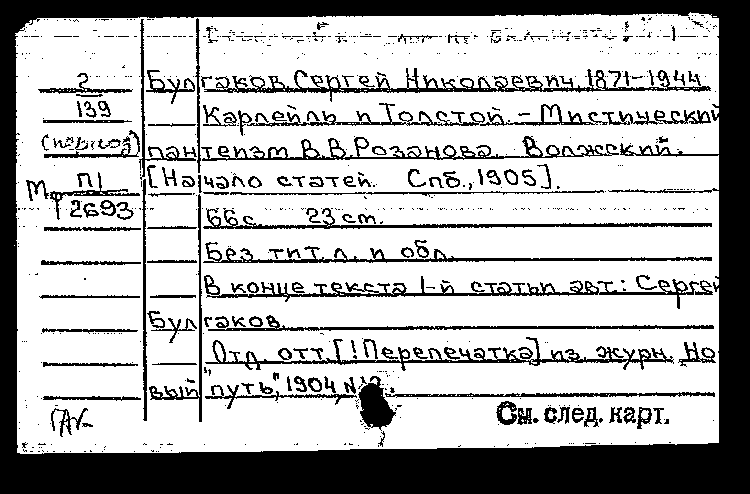 Булгаков, Сергей Николаевич, 1871-1944
2
139
Карлейль и Толстой. - Мистический
(период)
пантеизм В.В.Розанова. Волжский.
П1
[Начало статей. Спб., 1905].
Мф
2693
66с. 23 см.
Без тит. л. и обл.
В конце текста 1-й статьи авт.: Сергей
Булгаков.
Отд. отт. [!Перепечатка] из журн. Но-
вый "путь", 1904, №
См. след. карт.